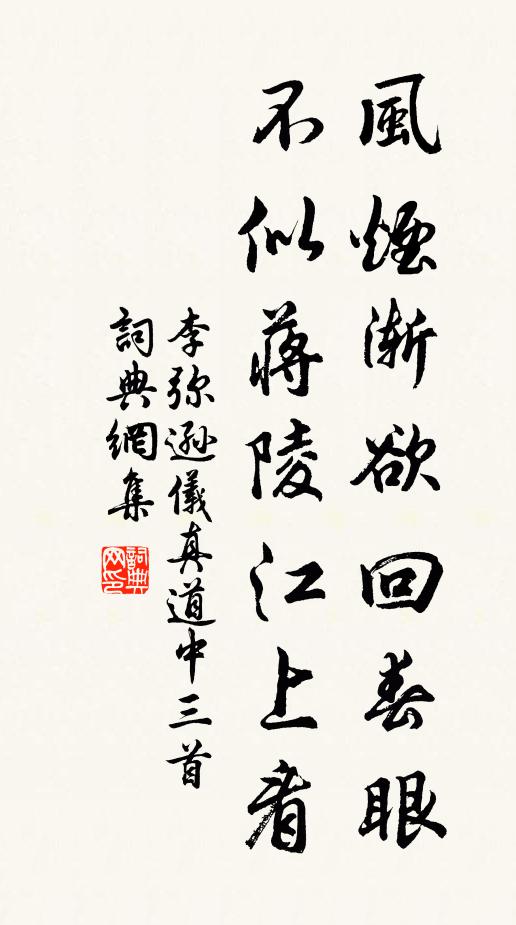 風煙漸欲回春眼
不似蔣陵江上看
李弥遜儀真道中三首
詞典網集
詞典网印